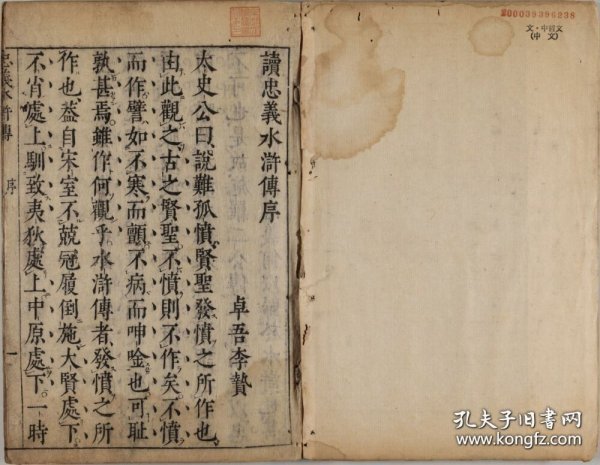 讀忠義水滸傳序
卓吾李贄
太史公曰說難孤憤賢聖發憤之所作也
由此觀之古之賢聖不憤則不作矣不憤
而作譬如不寒而顫不病而呻唫也可恥
孰甚焉雖作何觀乎水滸傳者發憤之所
作也葢自宋室不兢冠履倒施大賢處下
不肖處上馴致夷狄處上中原處下一時
忠義水滸傳
序
一
200039396238
文・中國文
(中文)
孔夫子旧书网
www.kongfz.com